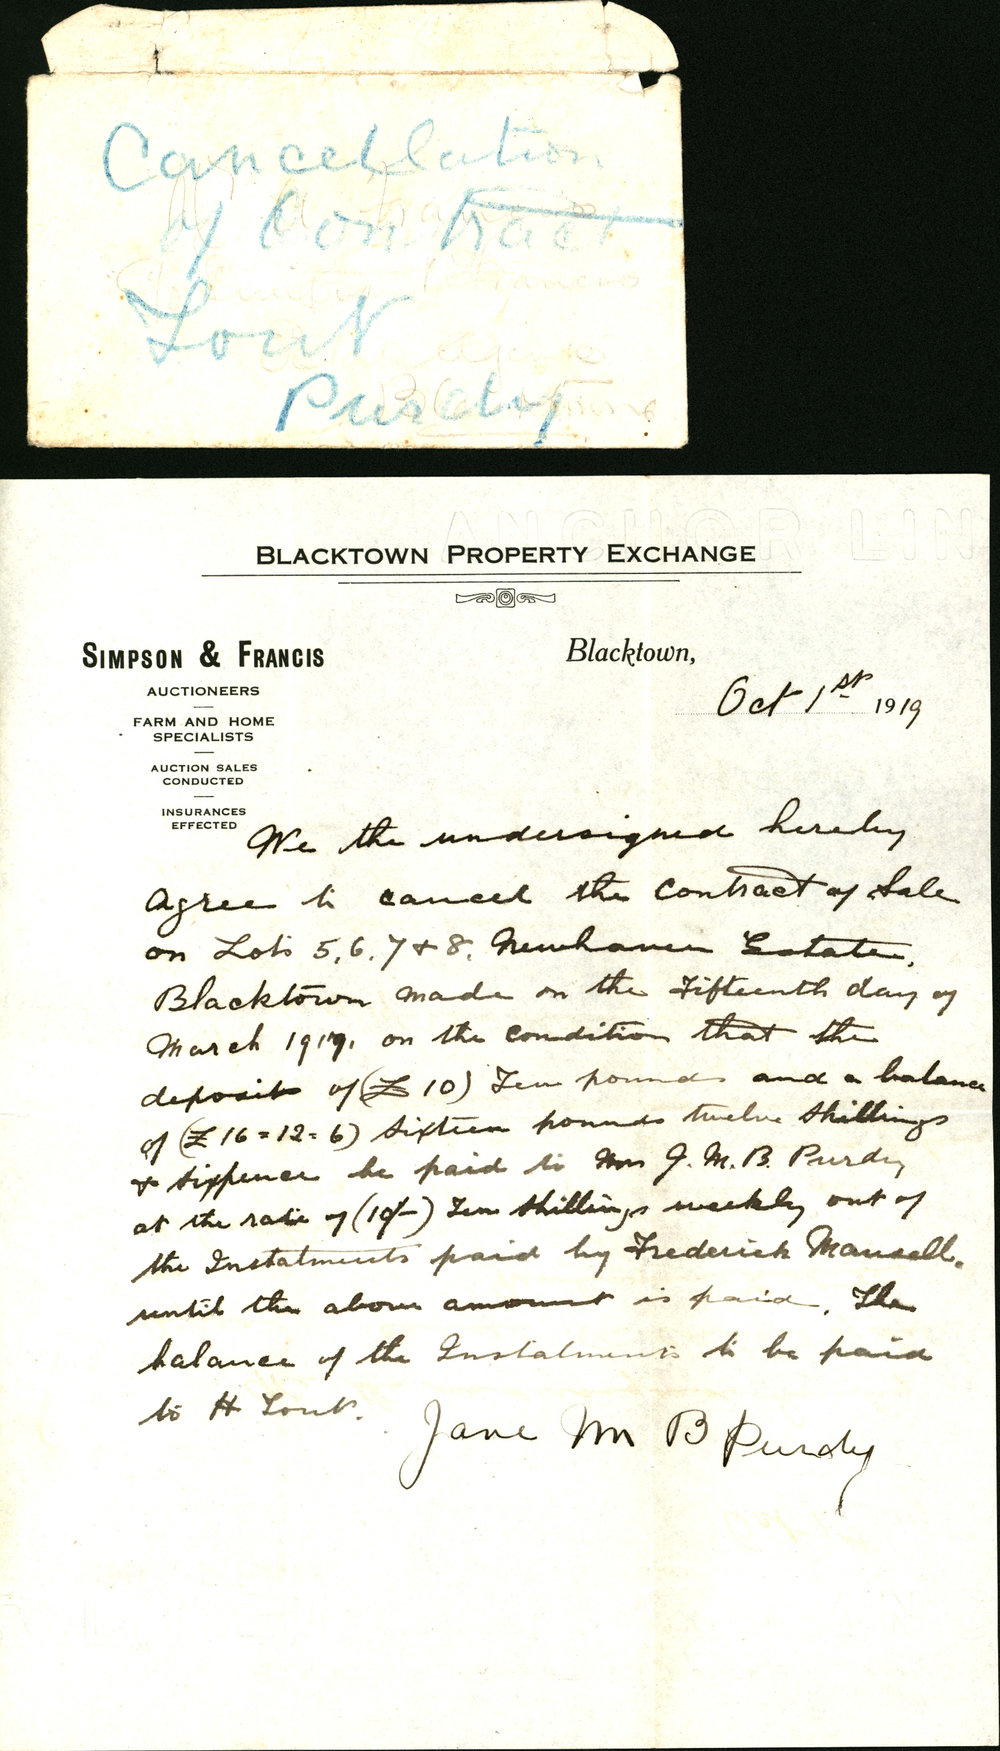 Cancellation
of Contract
Lout
Purdy
ANCHOR LIN
BLACKTOWN PROPERTY EXCHANGE
SIMPSON & FRANCIS
AUCTIONEERS
FARM AND HOME
SPECIALISTS
AUCTION SALES
CONDUCTED
INSURANCES
EFFECTED
Blacktown,
Oct 1st 1919
We the undersigned hereby
agree to cancel the contract of Sale
on Lots 5, 6, 7 & 8, Newhaven Estate,
Blacktown made on the Fifteenth day of
March 1919, on the condition that the
deposit of (£10) Ten pounds and a balance
of (£16=12=6) sixteen pounds twelve shillings
& sixpence be paid to Mrs J. M. B. Purdy
at the rate of (10/-) Ten shillings weekly out of
the Instalments paid by Frederick Mansell.
until the above amount is paid. The
balance of the Instalments to be paid
to H Lout.
Jane M B Purdy